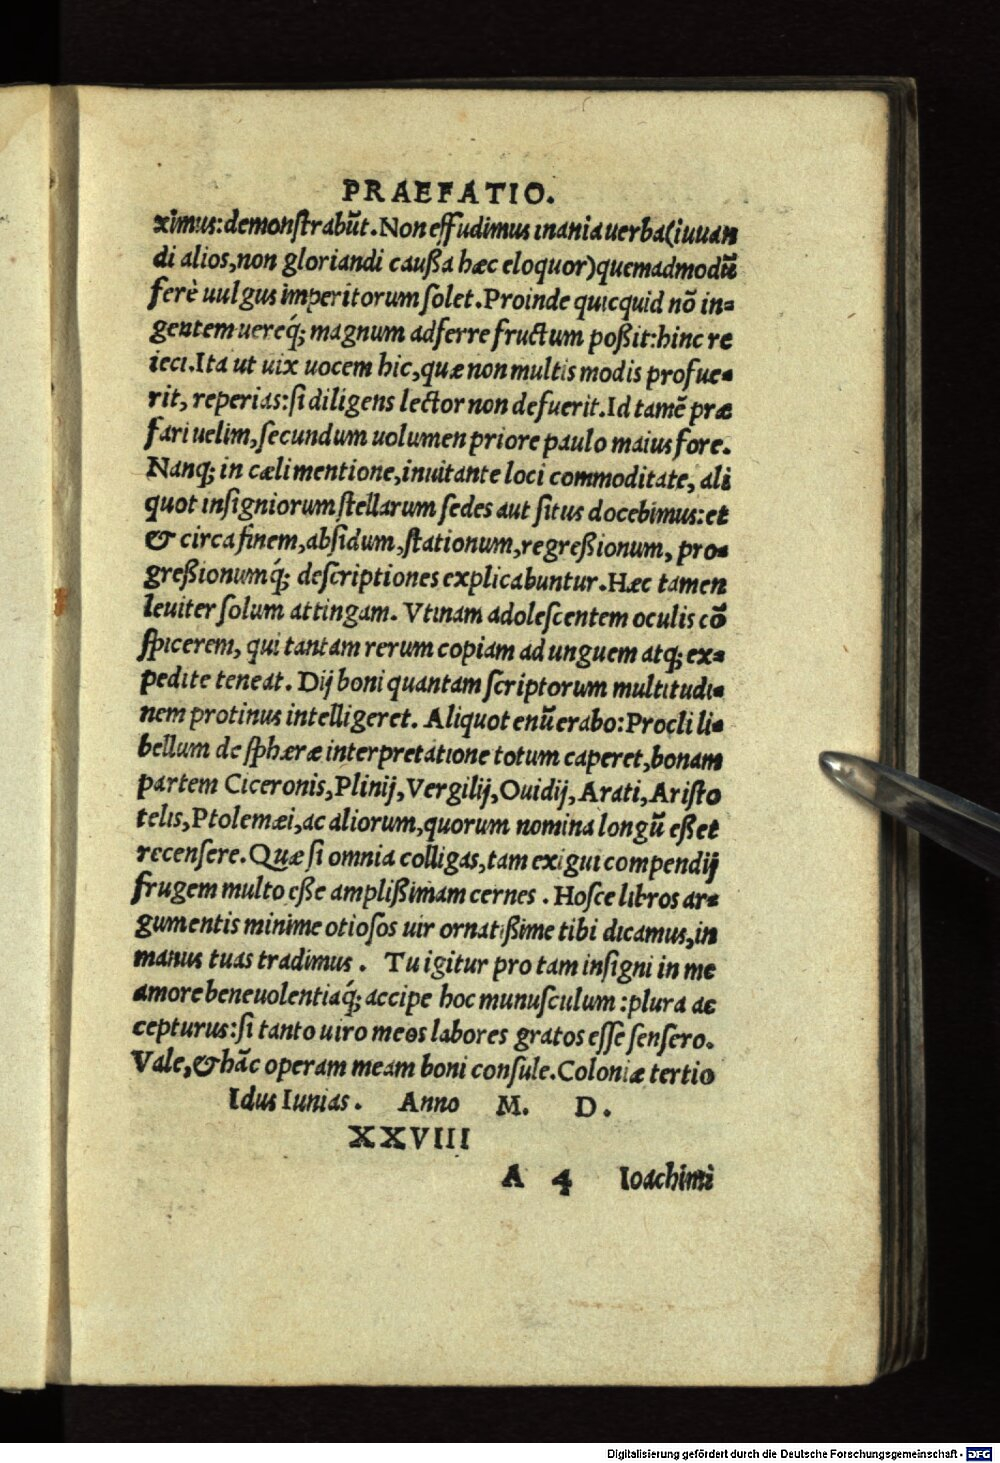 PRAEFATIO.
ximus:demonſtrabūt. Non effudimus inania uerba(iuuan
di alios,non gloriandi cauſſa hæc eloquor)quemadmodū
ferè uulgus imperitorum ſolet. Proinde quicquid nō in=
gentem uereq́; magnum adferre fructum poßit:hinc re
ieci. Ita ut uix uocem hic,quæ non multis modis profue=
rit, reperias:ſi diligens lector non defuerit. Id tamē præ
fari uelim,ſecundum uolumen priore paulo maius fore.
Nanq; in cæli mentione,inuitante loci commoditate, ali
quot inſigniorum ſtellarum ſedes aut ſitus docebimus:et
& circa finem,abſidum,ſtationum,regreßionum, pro=
greßionumq́; deſcriptiones explicabuntur. Hæc tamen
leuiter ſolum attingam. Vtinam adoleſcentem oculis cō
ſpicerem, qui tantam rerum copiam ad unguem atq; ex=
pedite teneat. Dij boni quantam ſcriptorum multitudi=
nem protinus intelligeret. Aliquot enūerabo:Procli li=
bellum de ſphæræ interpretatione totum caperet,bonam
partem Ciceronis,Plinij,Vergilij,Ouidij,Arati,Ariſto
telis,Ptolemæi,ac aliorum,quorum nomina longū eßet
recenſere. Quæ ſi omnia colligas,tam exigui compendij
frugem multo eße amplißimam cernes . Hoſce libros ar=
gumentis minime otioſos uir ornatißime tibi dicamus,in
manus tuas tradimus . Tu igitur pro tam inſigni in me
amore beneuolentiaq́; accipe hoc munuſculum :plura ac
cepturus:ſi tanto uiro meos labores gratos eſſe ſenſero.
Vale,& hāc operam meam boni conſule. Coloniæ tertio
Idus Iunias . Anno M. D.
XXVIII
A 4 Ioachimi
Digitalisierung gefördert durch die Deutsche Forschungsgemeinschaft - DFG